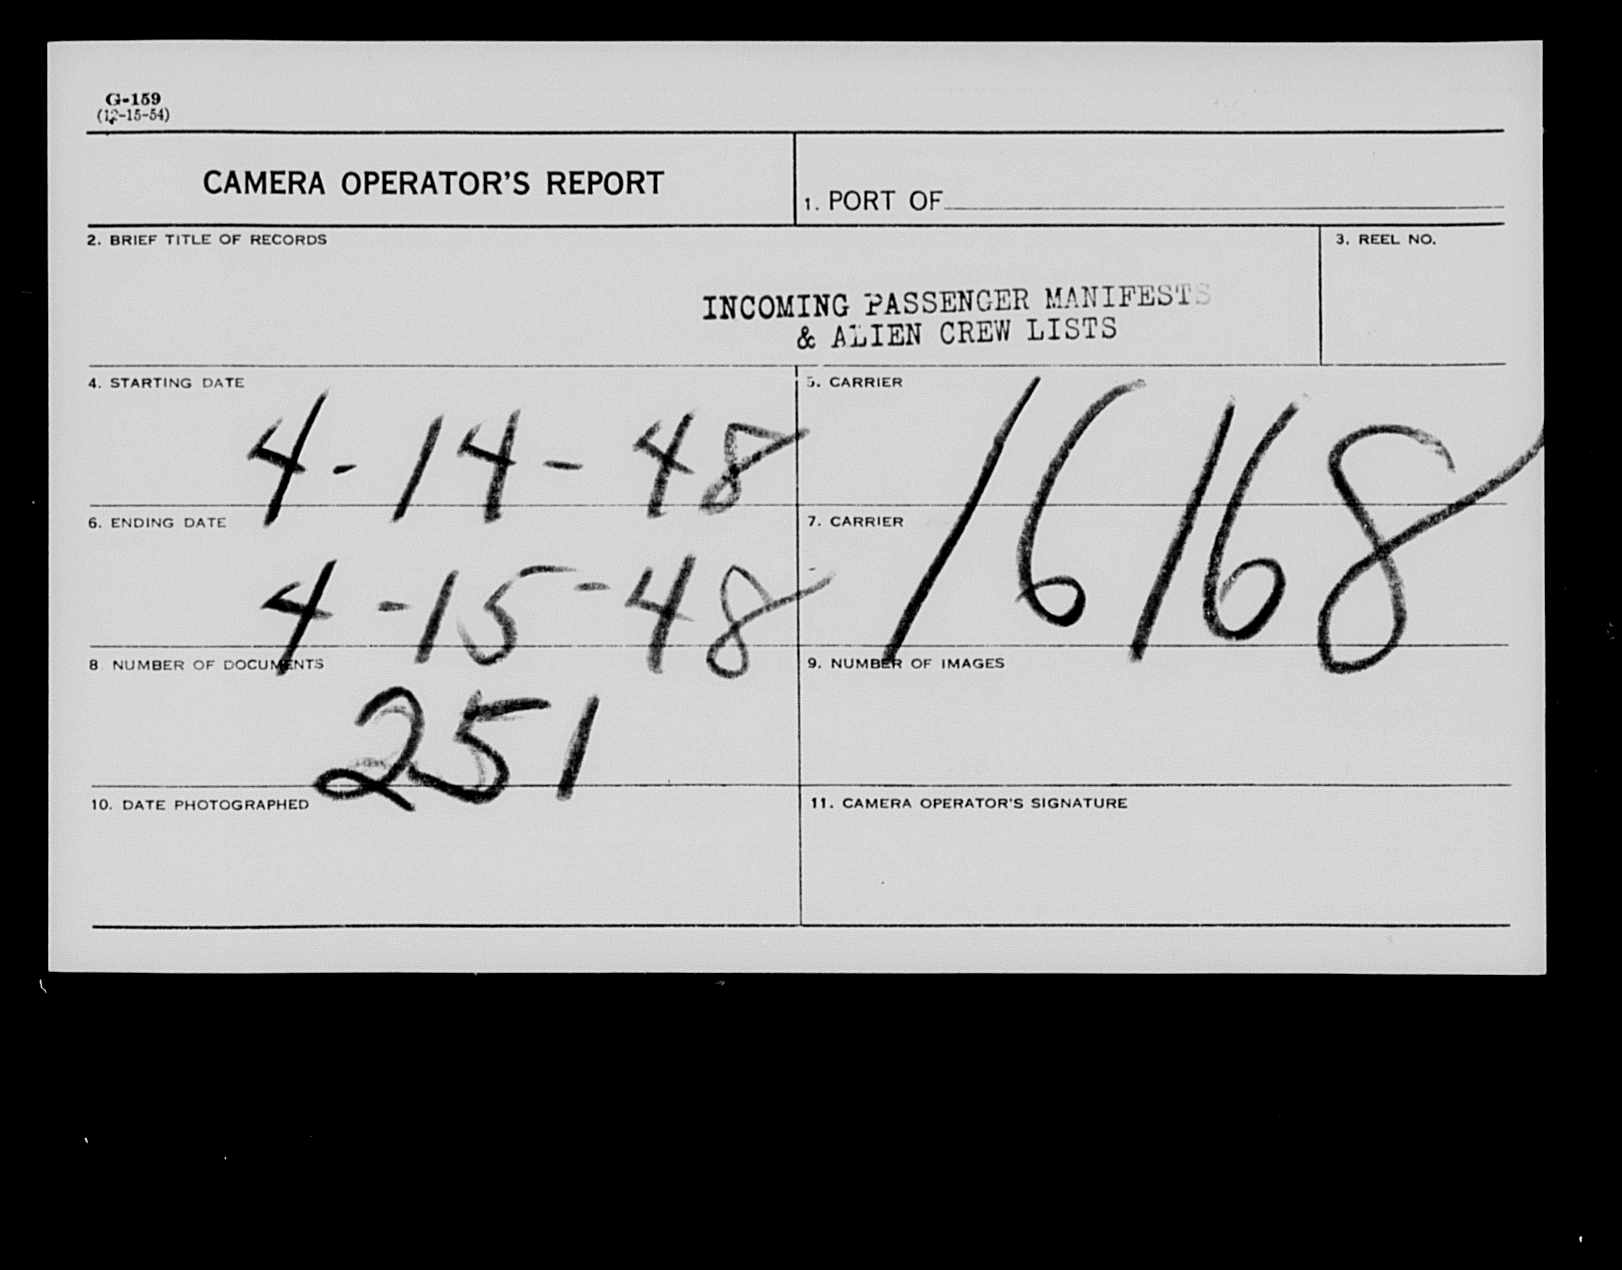 G-159
(12-15-54)
CAMERA OPERATOR'S REPORT
1. PORT OF
2. BRIEF TITLE OF RECORDS
3. REEL NO.
INCOMING PASSENGER MANIFESTS
& ALIEN CREW LISTS
4. STARTING DATE
4-14-48
5. CARRIER
16168
6. ENDING DATE
4-15-48
7. CARRIER
8 NUMBER OF DOCUMENTS
251
9. NUMBER OF IMAGES
10. DATE PHOTOGRAPHED
11. CAMERA OPERATOR'S SIGNATURE